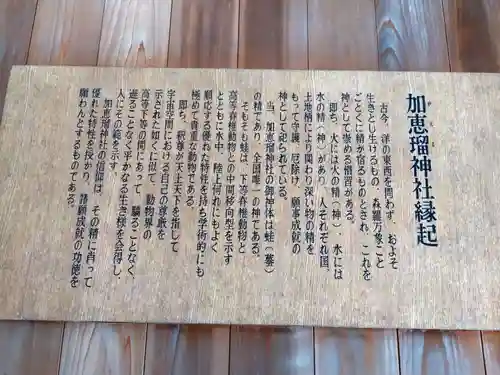 加恵瑠神社縁起
古今、洋の東西を問わず、およそ
生きとし生けるもの、森羅万象こと
ごとくに精が宿るものとされ、これを
神として崇める慣習のある。
即ち、火には火の精(神)、水には
水の精(神)があり、人それぞれ国、
土地柄により関わり深い物の精を
もって守護、厄除け、願事成就の
神として祀られている。
当、加恵瑠神社の御神体は蛙(蟇)
の精であり、全国唯一の神である。
そもそも蛙は、下等脊椎動物と
高等脊椎動物との中間移向型を示す
とともに水中、陸上何れにもよく
順応する優れた特性を持ち学術的にも
極めて貴重な動物である。
即ち、釈尊が天上天下を指して
宇宙空間における自己の尊厳を
示された如くに似て、動物界の
高等下等の間にあって、驕ることなく、
遜ることなく平かなる生き様を会得し、
人にその範を示す。
加恵瑠神社の信仰は、その精に肖って
優れた特性を授かり、諸願成就の功徳を
願わんとするものである。